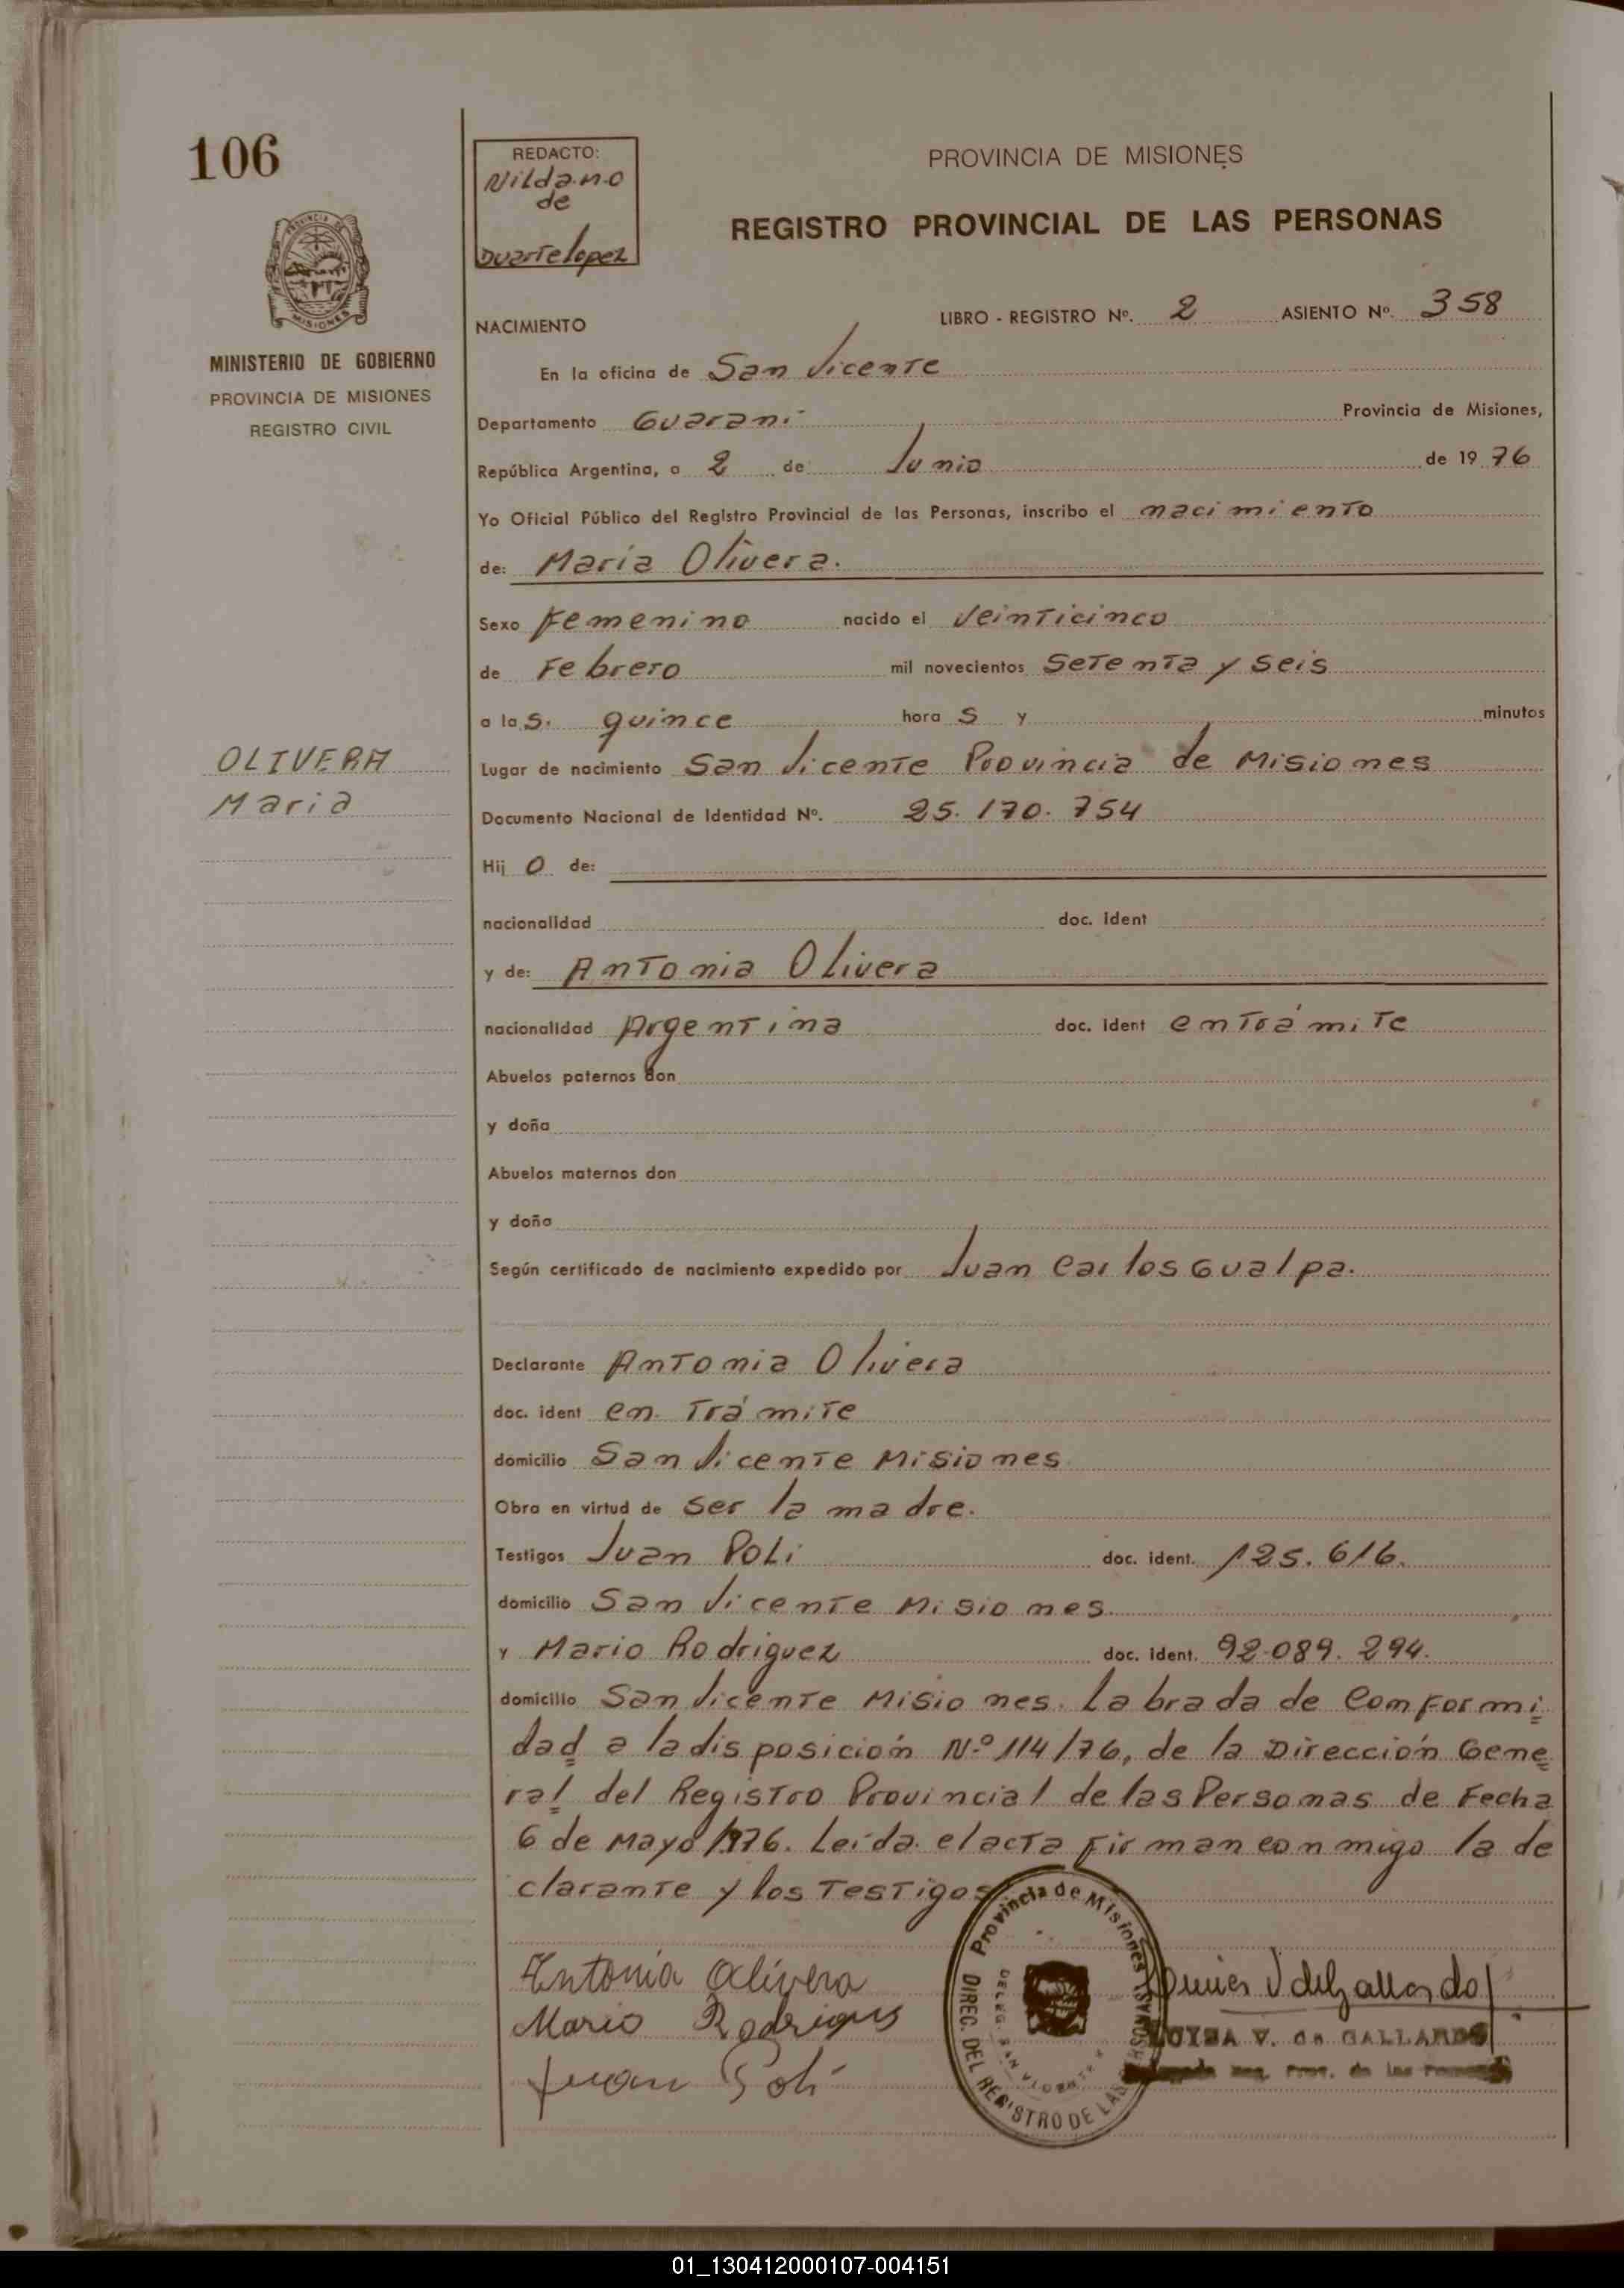 106
REDACTO:
Nilda.N.O
de
Duarte Lopez
PROVINCIA DE MISIONES
REGISTRO PROVINCIAL DE LAS PERSONAS
MINISTERIO DE GOBIERNO
PROVINCIA DE MISIONES
REGISTRO CIVIL
NACIMIENTO
LIBRO - REGISTRO Nº. 2 ASIENTO Nº. 358
En la oficina de San Vicente
Departamento Guarani Provincia de Misiones,
República Argentina, a 2 de Junio de 1976
Yo Oficial Público del Registro Provincial de las Personas, inscribo el nacimiento
de: Maria Olivera.
Sexo Femenino nacido el Veinticinco
de Febrero mil novecientos Setenta y Seis
a las. quince horas y minutos
OLIVERA
Maria
Lugar de nacimiento San Vicente Provincia de Misiones
Documento Nacional de Identidad Nº. 25.170.754
Hijo de:
nacionalidad doc. ident
y de: Antonia Olivera
nacionalidad Argentina doc. ident en trámite
Abuelos paternos don
y doña
Abuelos maternos don
y doña
Según certificado de nacimiento expedido por Juan Carlos Gualpa.
Declarante Antonia Olivera
doc. ident en trámite
domicilio San Vicente Misiones
Obra en virtud de ser la madre.
Testigos Juan Poli doc. ident. 125.616.
domicilio San Vicente Misiones.
y Mario Rodriguez doc. ident. 92.089.294.
domicilio San Vicente Misiones. Labrada de Conformi
dad a la disposición Nº 114/76, de la Dirección Gene
ral del Registro Provincial de las Personas de Fecha
6 de Mayo/1976. Leída el acta Firman conmigo la de
clarante y los Testigos
Antonia Olivera
Mario Rodrigues
Juan Poli
Provincia de Misiones
DIREC. DEL REGISTRO DE LAS PERSONAS
DELEG. SAN VICENTE
LUISA V. de GALLARDO
Delegada Reg. Prov. de las Personas
01_130412000107-004151